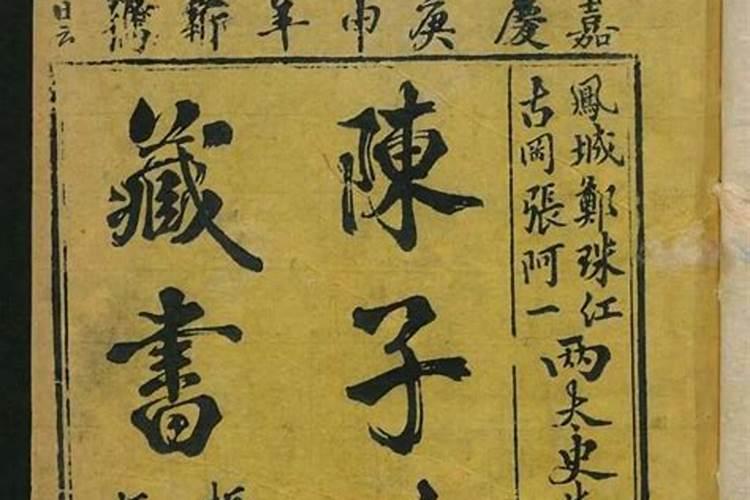 嘉慶庚申年新鐫
鳳城鄭珠江
古岡張阿一
兩太史
陳子
藏書